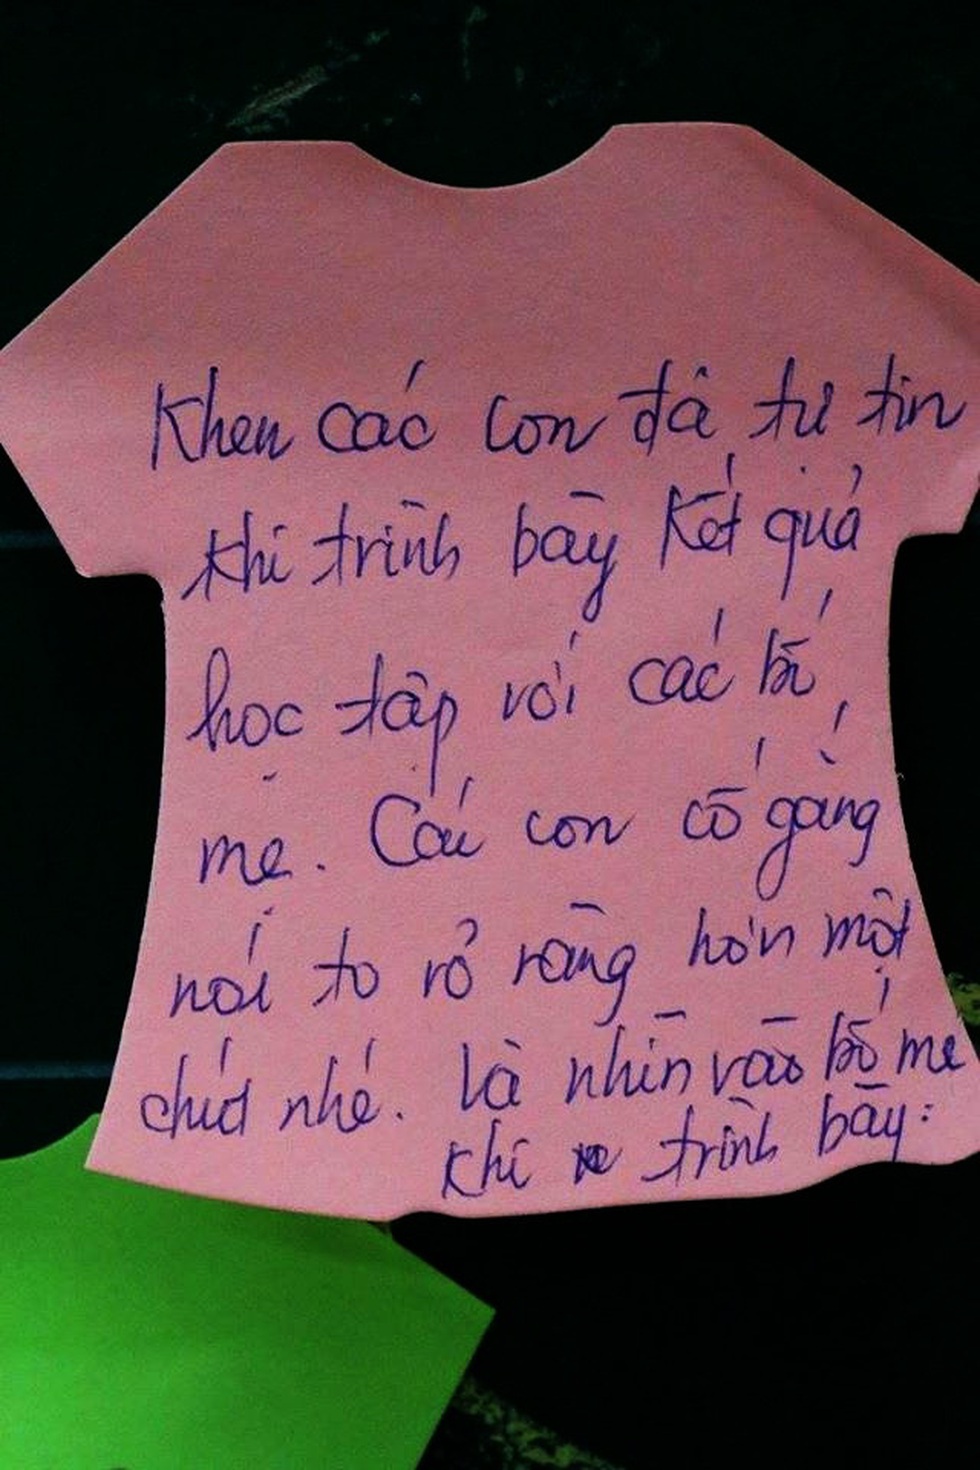 Khen các con đã tự tin
khi trình bày kết quả
học tập với các bố,
mẹ. Các con cố gắng
nói to rõ ràng hơn một
chút nhé. Và nhìn vào bố mẹ
khi trình bày.